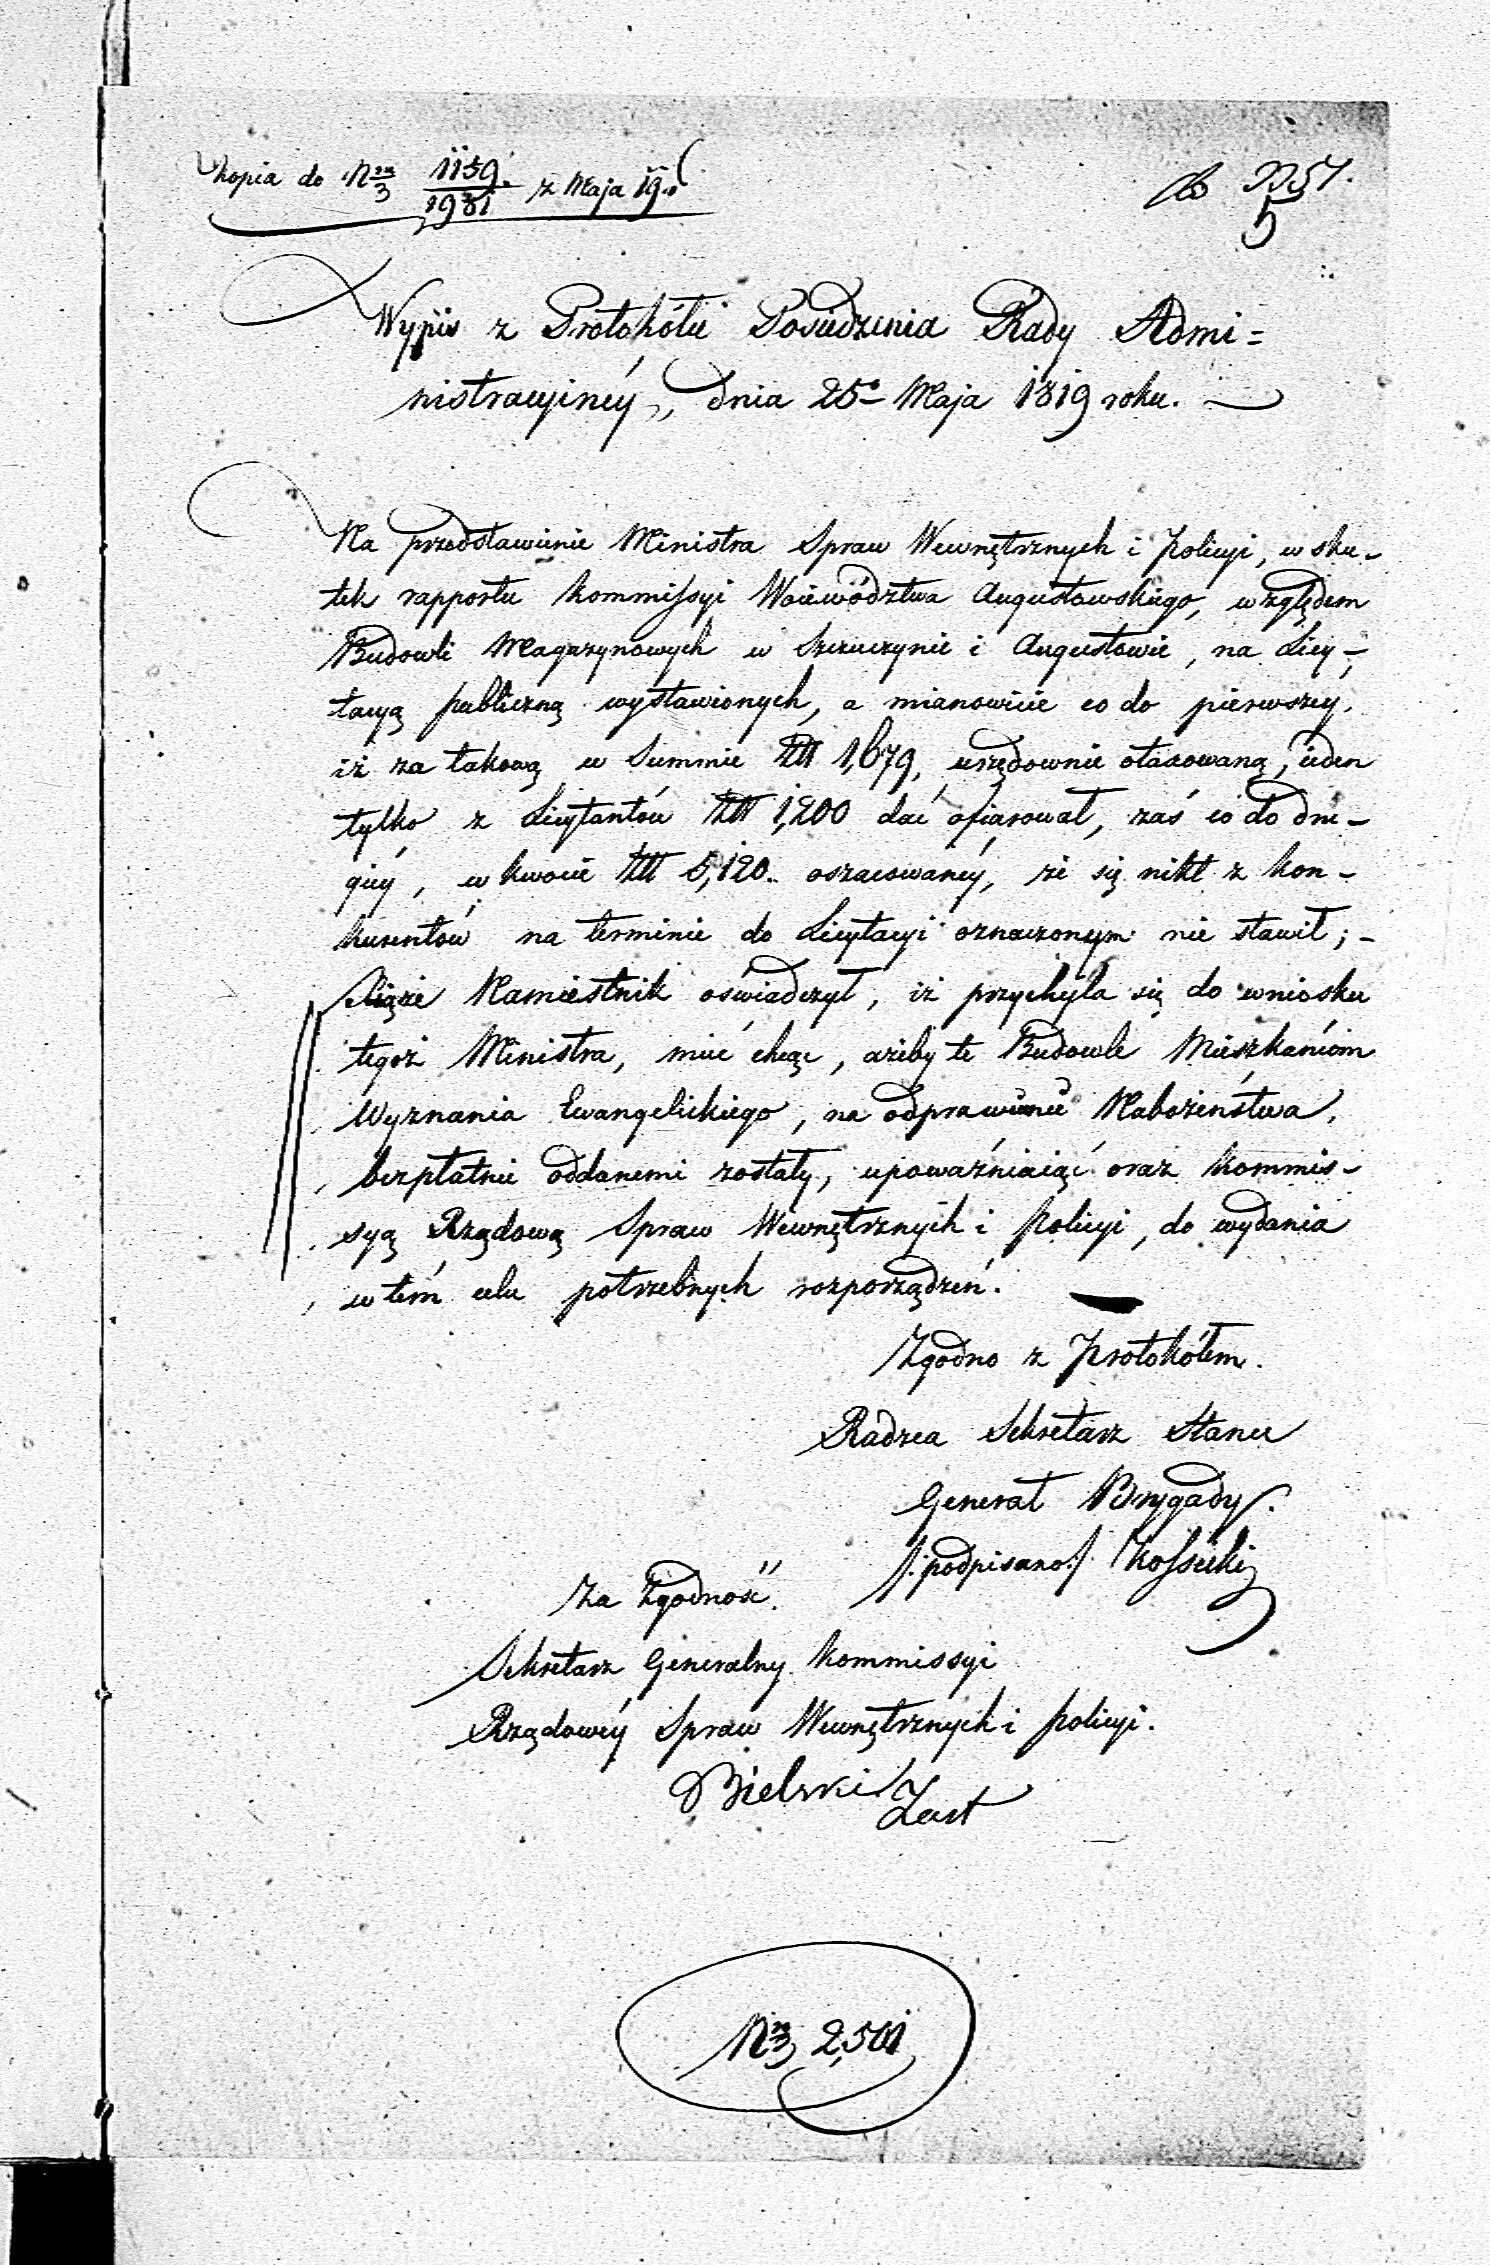 Kopia do Nru 1159/1981 z Maja 19.
Wypis z Protokółu Posiedzenia Rady Admi=
nistracyinéy, dnia 25º Maja 1819 roku.
Na przedstawienie Ministra Spraw Wewnętrznych i Policyi, w sku-
tek rapportu Kommissyi Woiewództwa Augustowskiego, względem
Budowli Magazynowych w Szczuczynie i Augustowie, na Licy-
tacyą publiczną wystawionych, a mianowicie co do pierwszey,
iż za takową w Summie Złł 1,679, urzędownie otaxowaną, ieden
tylko z Licytantów Złł 1,200 dać ofiarował, zaś co do dru-
giéy, w kwocie Złł 5,120. oszacowanéy, że się nikt z kon-
kurentów na terminie do Licytacyi oznaczonym nie stawił; -
Xiąże Namiestnik oświadczył, iż przychyla się do wniosku
tegoż Ministra, mieć chcąc, ażeby te Budowle Mieszkańcom
Wyznania Ewangelickiego, na odprawianie Nabożeństwa,
bezpłatnie oddanemi zostały, upoważniaiąc oraz Kommis-
syą Rządową Spraw Wewnętrznych i Policyi, do wydania
w tém celu potrzebnych rozporządzeń.
Zgodno z Protokółem.
Radzca Sekretarz Stanu
Generał Brygady.
/: podpisano :/ Kossecki
Za Zgodność.
Sekretarz Generalny Kommissyi
Rządowéy Spraw Wewnętrznych i Policyi.
Bielski Zast
Nr 2,501